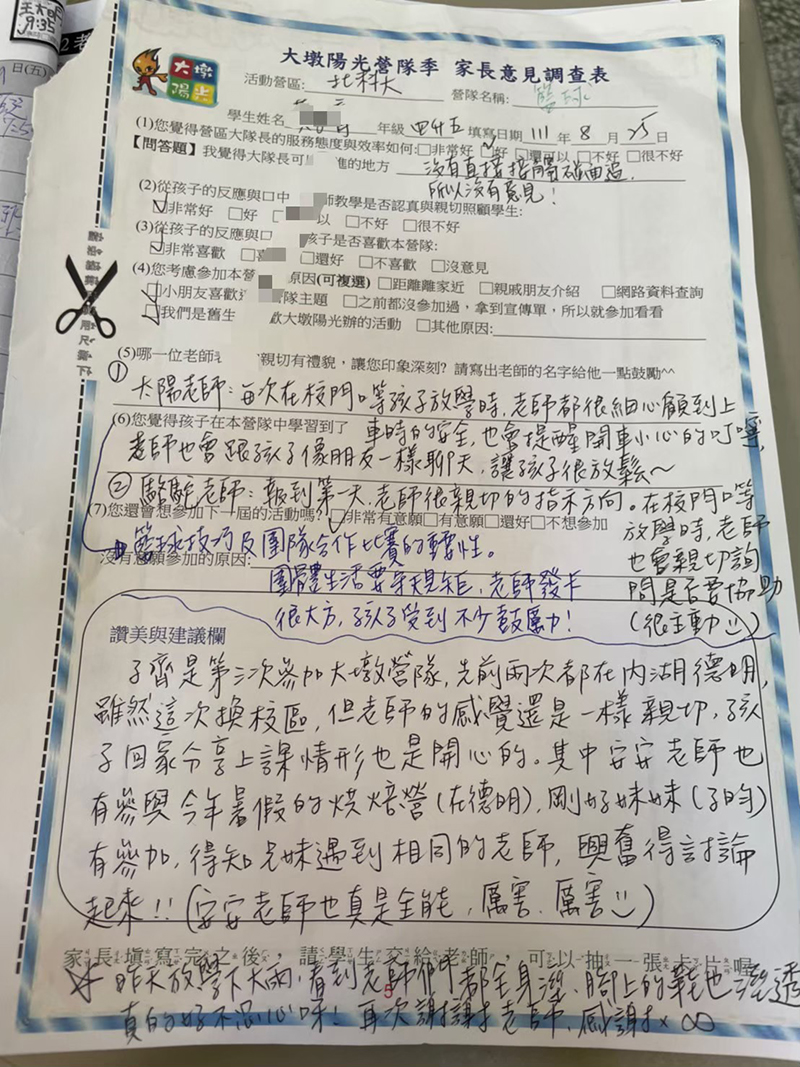 王大明
9:35
日(五)
大墩
陽光
大墩陽光營隊季 家長意見調查表
活動營區: 北科大 營隊名稱: 籃球
學生姓名 年級 四升五 填寫日期 111 年 8 月 25 日
(1)您覺得營區大隊長的服務態度與效率如何:□非常好 □好 □還可以 □不好 □很不好
【問答題】我覺得大隊長可 進的地方 沒有直接接觸碰面過,
所以沒有意見!
(2)從孩子的反應與口中 師教學是否認真與親切照顧學生:
☑非常好 □好 以 □不好 □很不好
(3)從孩子的反應與口 孩子是否喜歡本營隊:
☑非常喜歡 □ □還好 □不喜歡 □沒意見
(4)您考慮參加本營 原因(可複選) □距離離家近 □親戚朋友介紹 □網路資料查詢
☑小朋友喜歡 隊主題 □之前都沒參加過,拿到宣傳單,所以就參加看看
☑我們是舊生 歡大墩陽光辦的活動 □其他原因:
(5)哪一位老師 親切有禮貌,讓您印象深刻?請寫出老師的名字給他一點鼓勵^^
① 太陽老師:每次在校門口等孩子放學時,老師都很細心顧到上
(6)您覺得孩子在本營隊中學習到了 車時的安全,也會提醒開車小心的叮嚀,
老師也會跟孩子像朋友一樣聊天,讓孩子很放鬆~
② 駱駝老師:報到第一天,老師很親切的指示方向。在校門口等
(7)您還會想參加下一屆的活動嗎?☑非常有意願□有意願□還好□不想參加 放學時,老師
籃球技巧及團隊合作比賽的重要性。 也會親切詢
沒有意願參加的原因: 團體生活要守規矩,老師發卡 問是否要協助
很大方,孩子受到不少鼓勵! (很主動☺)
讚美與建議欄
子齊是第三次參加大墩營隊,先前兩次都在內湖德明,
雖然這次換校區,但老師的感覺還是一樣親切,孩
子回家分享上課情形也是開心的。其中安安老師也
有參與今年暑假的烘焙營(在德明),剛好妹妹(子昀)
有參加,得知兄妹遇到相同的老師,興奮得討論
起來!!(安安老師也真是全能,厲害、厲害☺)
家長填寫完之後,請學生交給老師,可以抽一張卡片喔
※昨天放學下大雨,看到老師們都全身溼、腳上的鞋也溼透
真的好不忍心呀!再次謝謝老師,感謝x∞